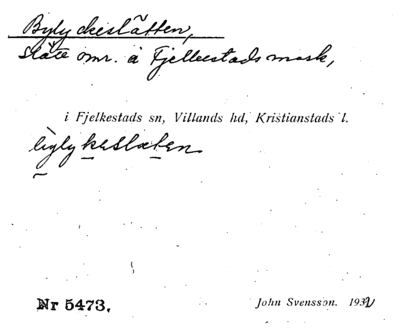 Byly ckeslätten,
Släte omr. å Fjelkestads mark,
i Fjelkestads sn, Villands hd, Kristianstads l.
bigly keslæten
Nr 5473.
John Svensson. 1932